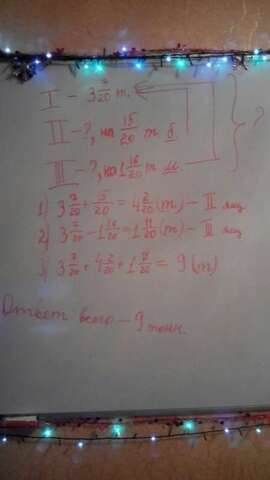 I – 3 7/20 т.
II – ?, на 15/20 т. б
III – ?, на 1 16/20 т. м } ?
1) 3 7/20 + 15/20 = 4 2/20 (т) – II ящ
2) 3 7/20 – 1 16/20 = 1 11/20 (т) – III ящ
3) 3 7/20 + 4 2/20 + 1 11/20 = 9 (т)
Ответ всего – 9 тонн.